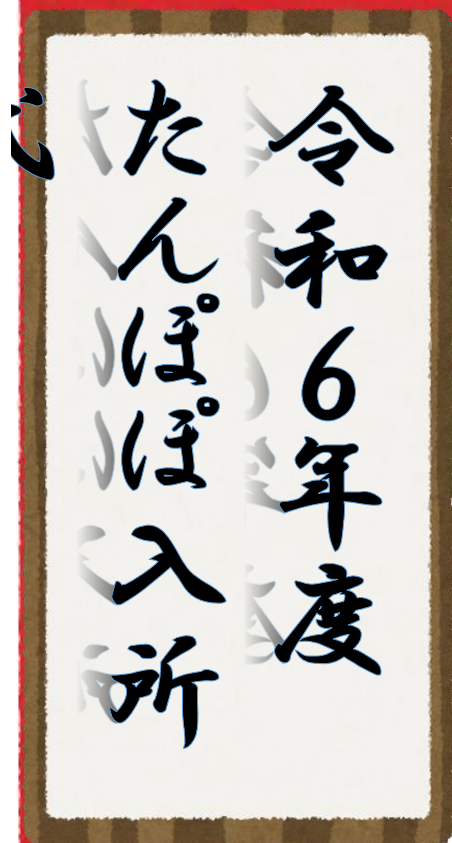 令和6年度
たんぽぽ入所